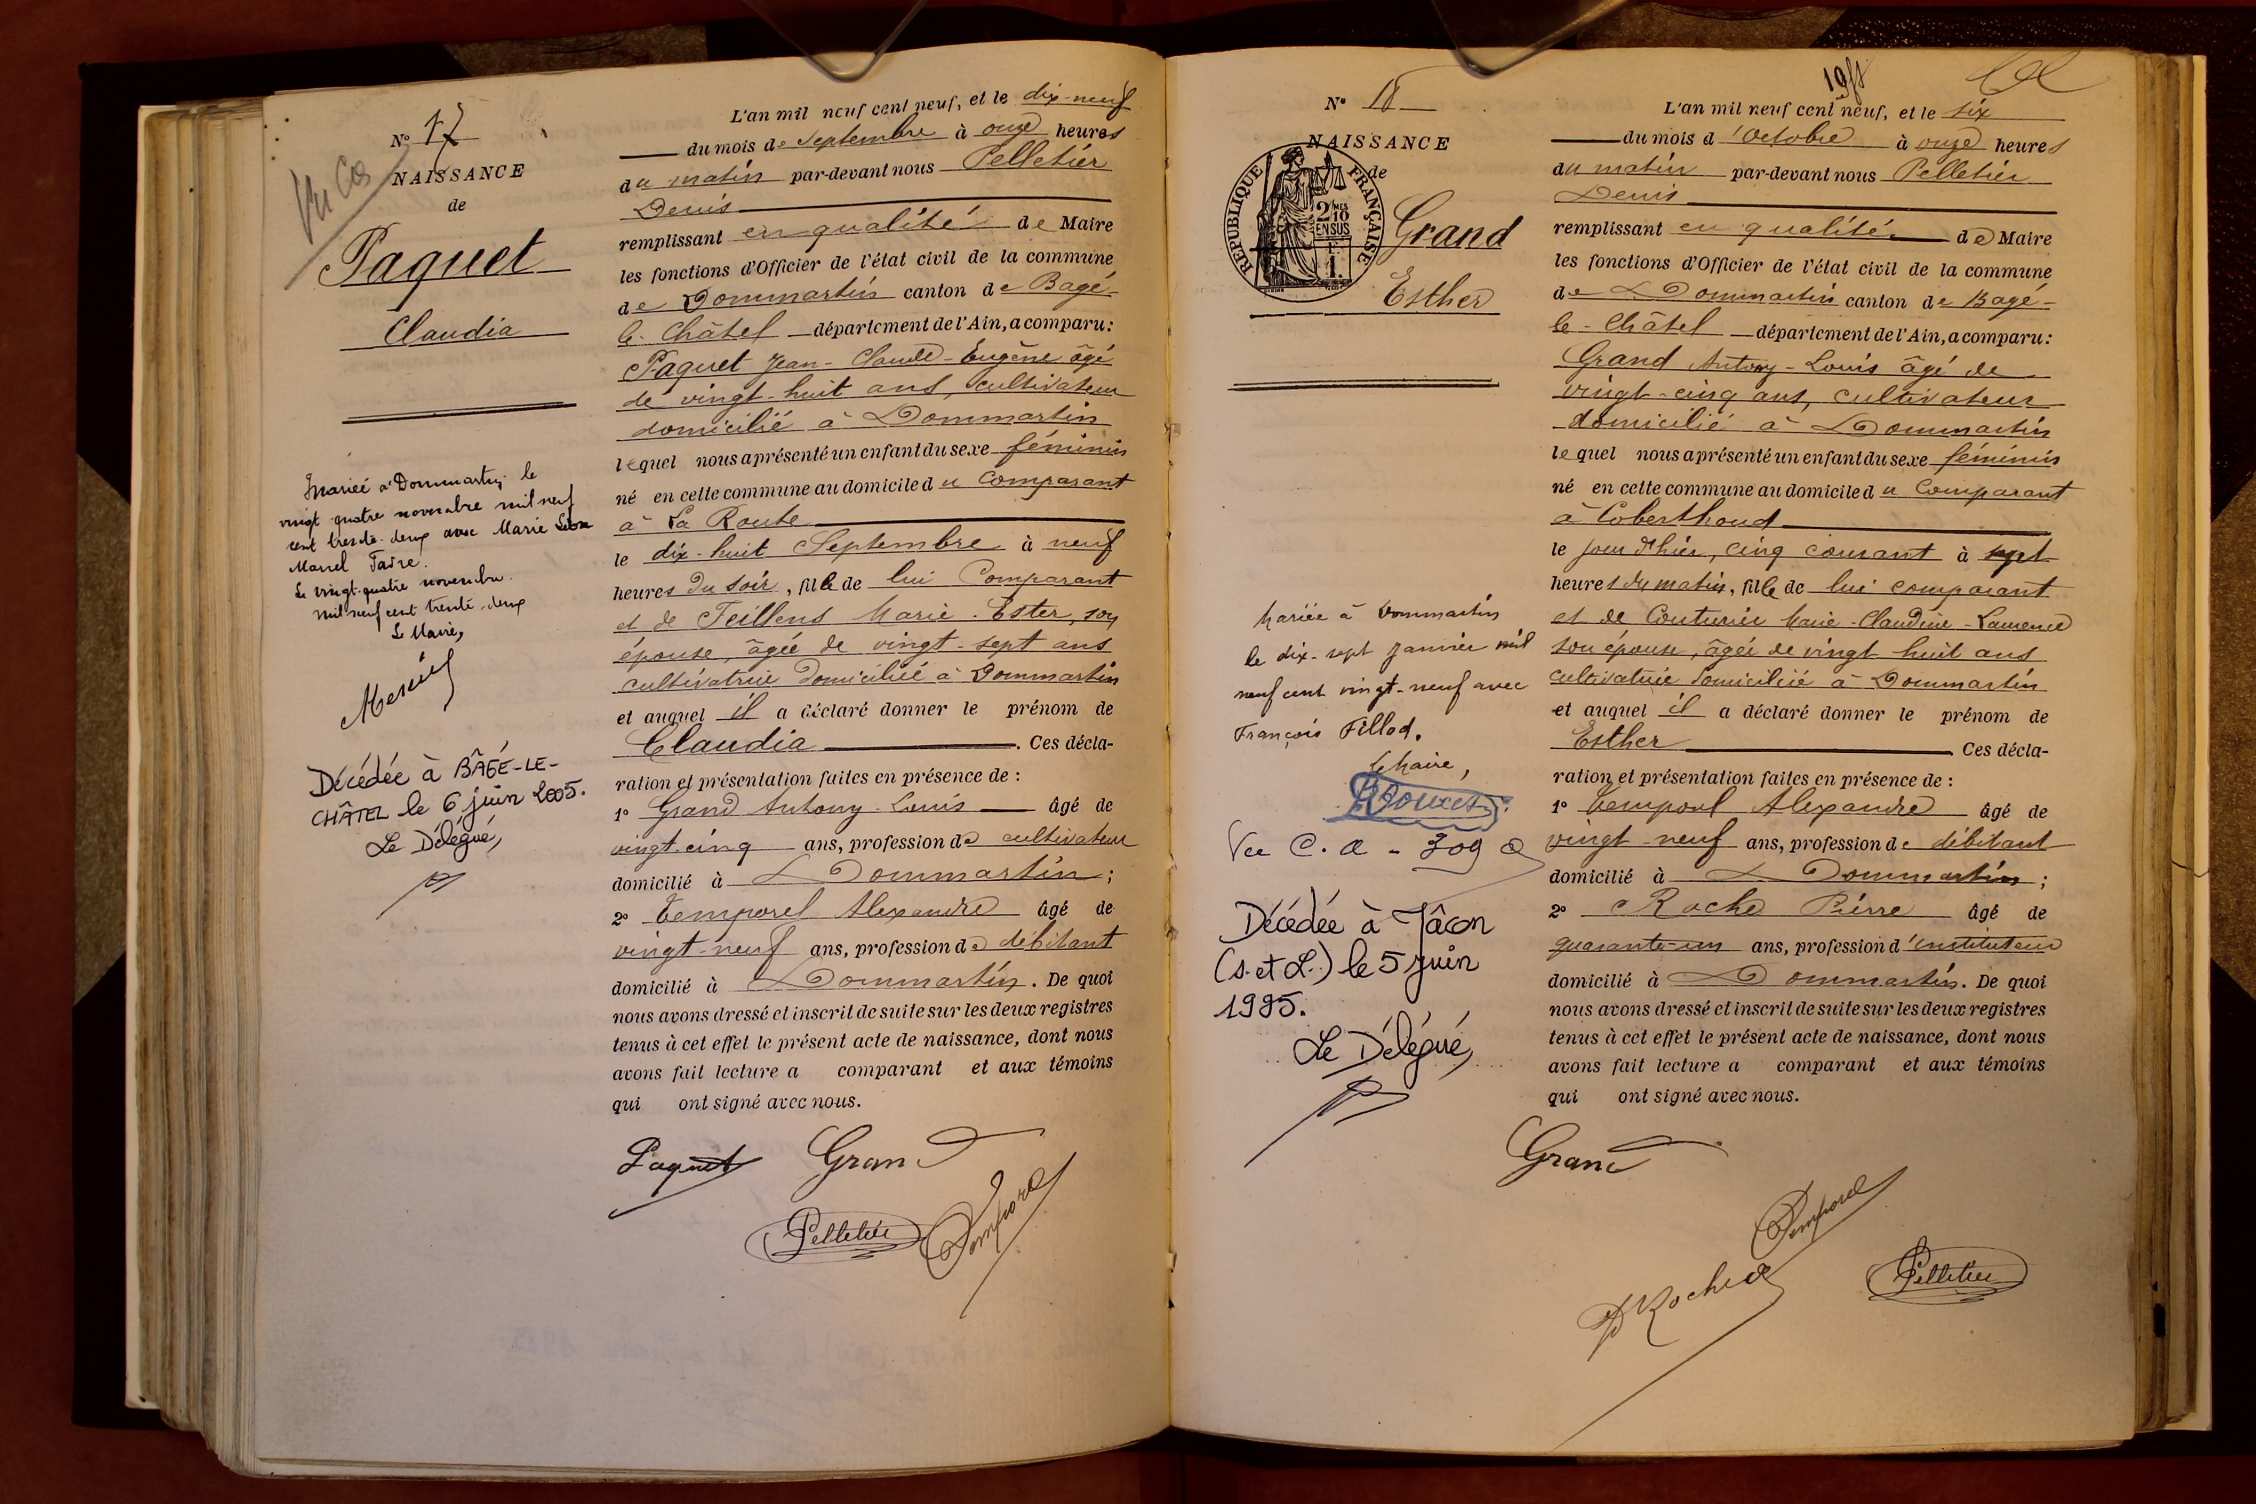 N° 17
NAISSANCE
de
Paquet
Claudia
Mariée à Dommartin le
vingt quatre novembre mil neuf
cent trente-deux avec Marie Léon
Marcel Favre.
Le vingt-quatre novembre
mil neuf cent trente-deux
Le Maire,
Décédée à BÂGÉ-LE-
CHÂTEL le 6 juin 2005.
Le Délégué,
L'an mil neuf cent neuf, et le dix-neuf
du mois de Septembre à onze heures
du matin par-devant nous Pelletier
Denis
remplissant en qualité de Maire
les fonctions d'Officier de l'état civil de la commune
de Dommartin canton de Bagé-
le-Châtel département de l'Ain, a comparu:
Paquet Jean-Claude-Eugène âgé
de vingt-huit ans, cultivateur
domicilié à Dommartin
lequel nous a présenté un enfant du sexe féminin
né en cette commune au domicile du Comparant
à La Route
le dix-huit Septembre à neuf
heures du soir, fille de lui Comparant
et de Feillens Marie-Ester, son
épouse, âgée de vingt-sept ans
cultivatrice domiciliée à Dommartin
et auquel il a déclaré donner le prénom de
Claudia. Ces décla-
ration et présentation faites en présence de :
1° Grand Antony-Louis âgé de
vingt-cinq ans, profession de cultivateur
domicilié à Dommartin ;
2° Temporel Alexandre âgé de
vingt-neuf ans, profession de débitant
domicilié à Dommartin. De quoi
nous avons dressé et inscrit de suite sur les deux registres
tenus à cet effet le présent acte de naissance, dont nous
avons fait lecture a comparant et aux témoins
qui ont signé avec nous.
Paquet Grand
Pelletier Temporel
N° 18
NAISSANCE
de
RÉPUBLIQUE FRANÇAISE
2/10
EN SUS
Grand
Esther
Mariée à Dommartin
le dix-sept janvier mil
neuf cent vingt-neuf avec
François Fillod.
Le Maire,
Décédée à Mâcon
(S. et L.) le 5 juin
1995.
Le Délégué,
L'an mil neuf cent neuf, et le six
du mois d'Octobre à onze heures
du matin par-devant nous Pelletier
Denis
remplissant en qualité de Maire
les fonctions d'Officier de l'état civil de la commune
de Dommartin canton de Bagé-
le-Châtel département de l'Ain, a comparu:
Grand Antony-Louis âgé de
vingt-cinq ans, cultivateur
domicilié à Dommartin
lequel nous a présenté un enfant du sexe féminin
né en cette commune au domicile du Comparant
à Coberthoud
le jour d'hier, cinq courant à sept
heures du matin, fille de lui comparant
et de Couturier Marie-Claudine-Laurence
son épouse, âgée de vingt huit ans
cultivatrice domiciliée à Dommartin
et auquel il a déclaré donner le prénom de
Esther Ces décla-
ration et présentation faites en présence de :
1° Temporel Alexandre âgé de
vingt-neuf ans, profession de débitant
domicilié à Dommartin ;
2° Roche Pierre âgé de
quarante-un ans, profession d'instituteur
domicilié à Dommartin. De quoi
nous avons dressé et inscrit de suite sur les deux registres
tenus à cet effet le présent acte de naissance, dont nous
avons fait lecture a comparant et aux témoins
qui ont signé avec nous.
Grand
Temporel
P Roche
Pelletier